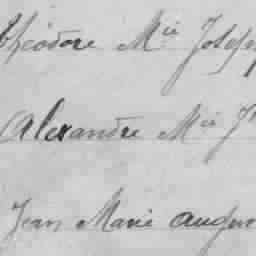 Théodore Mie Joseph
Alexandre Mie
Jean Marie